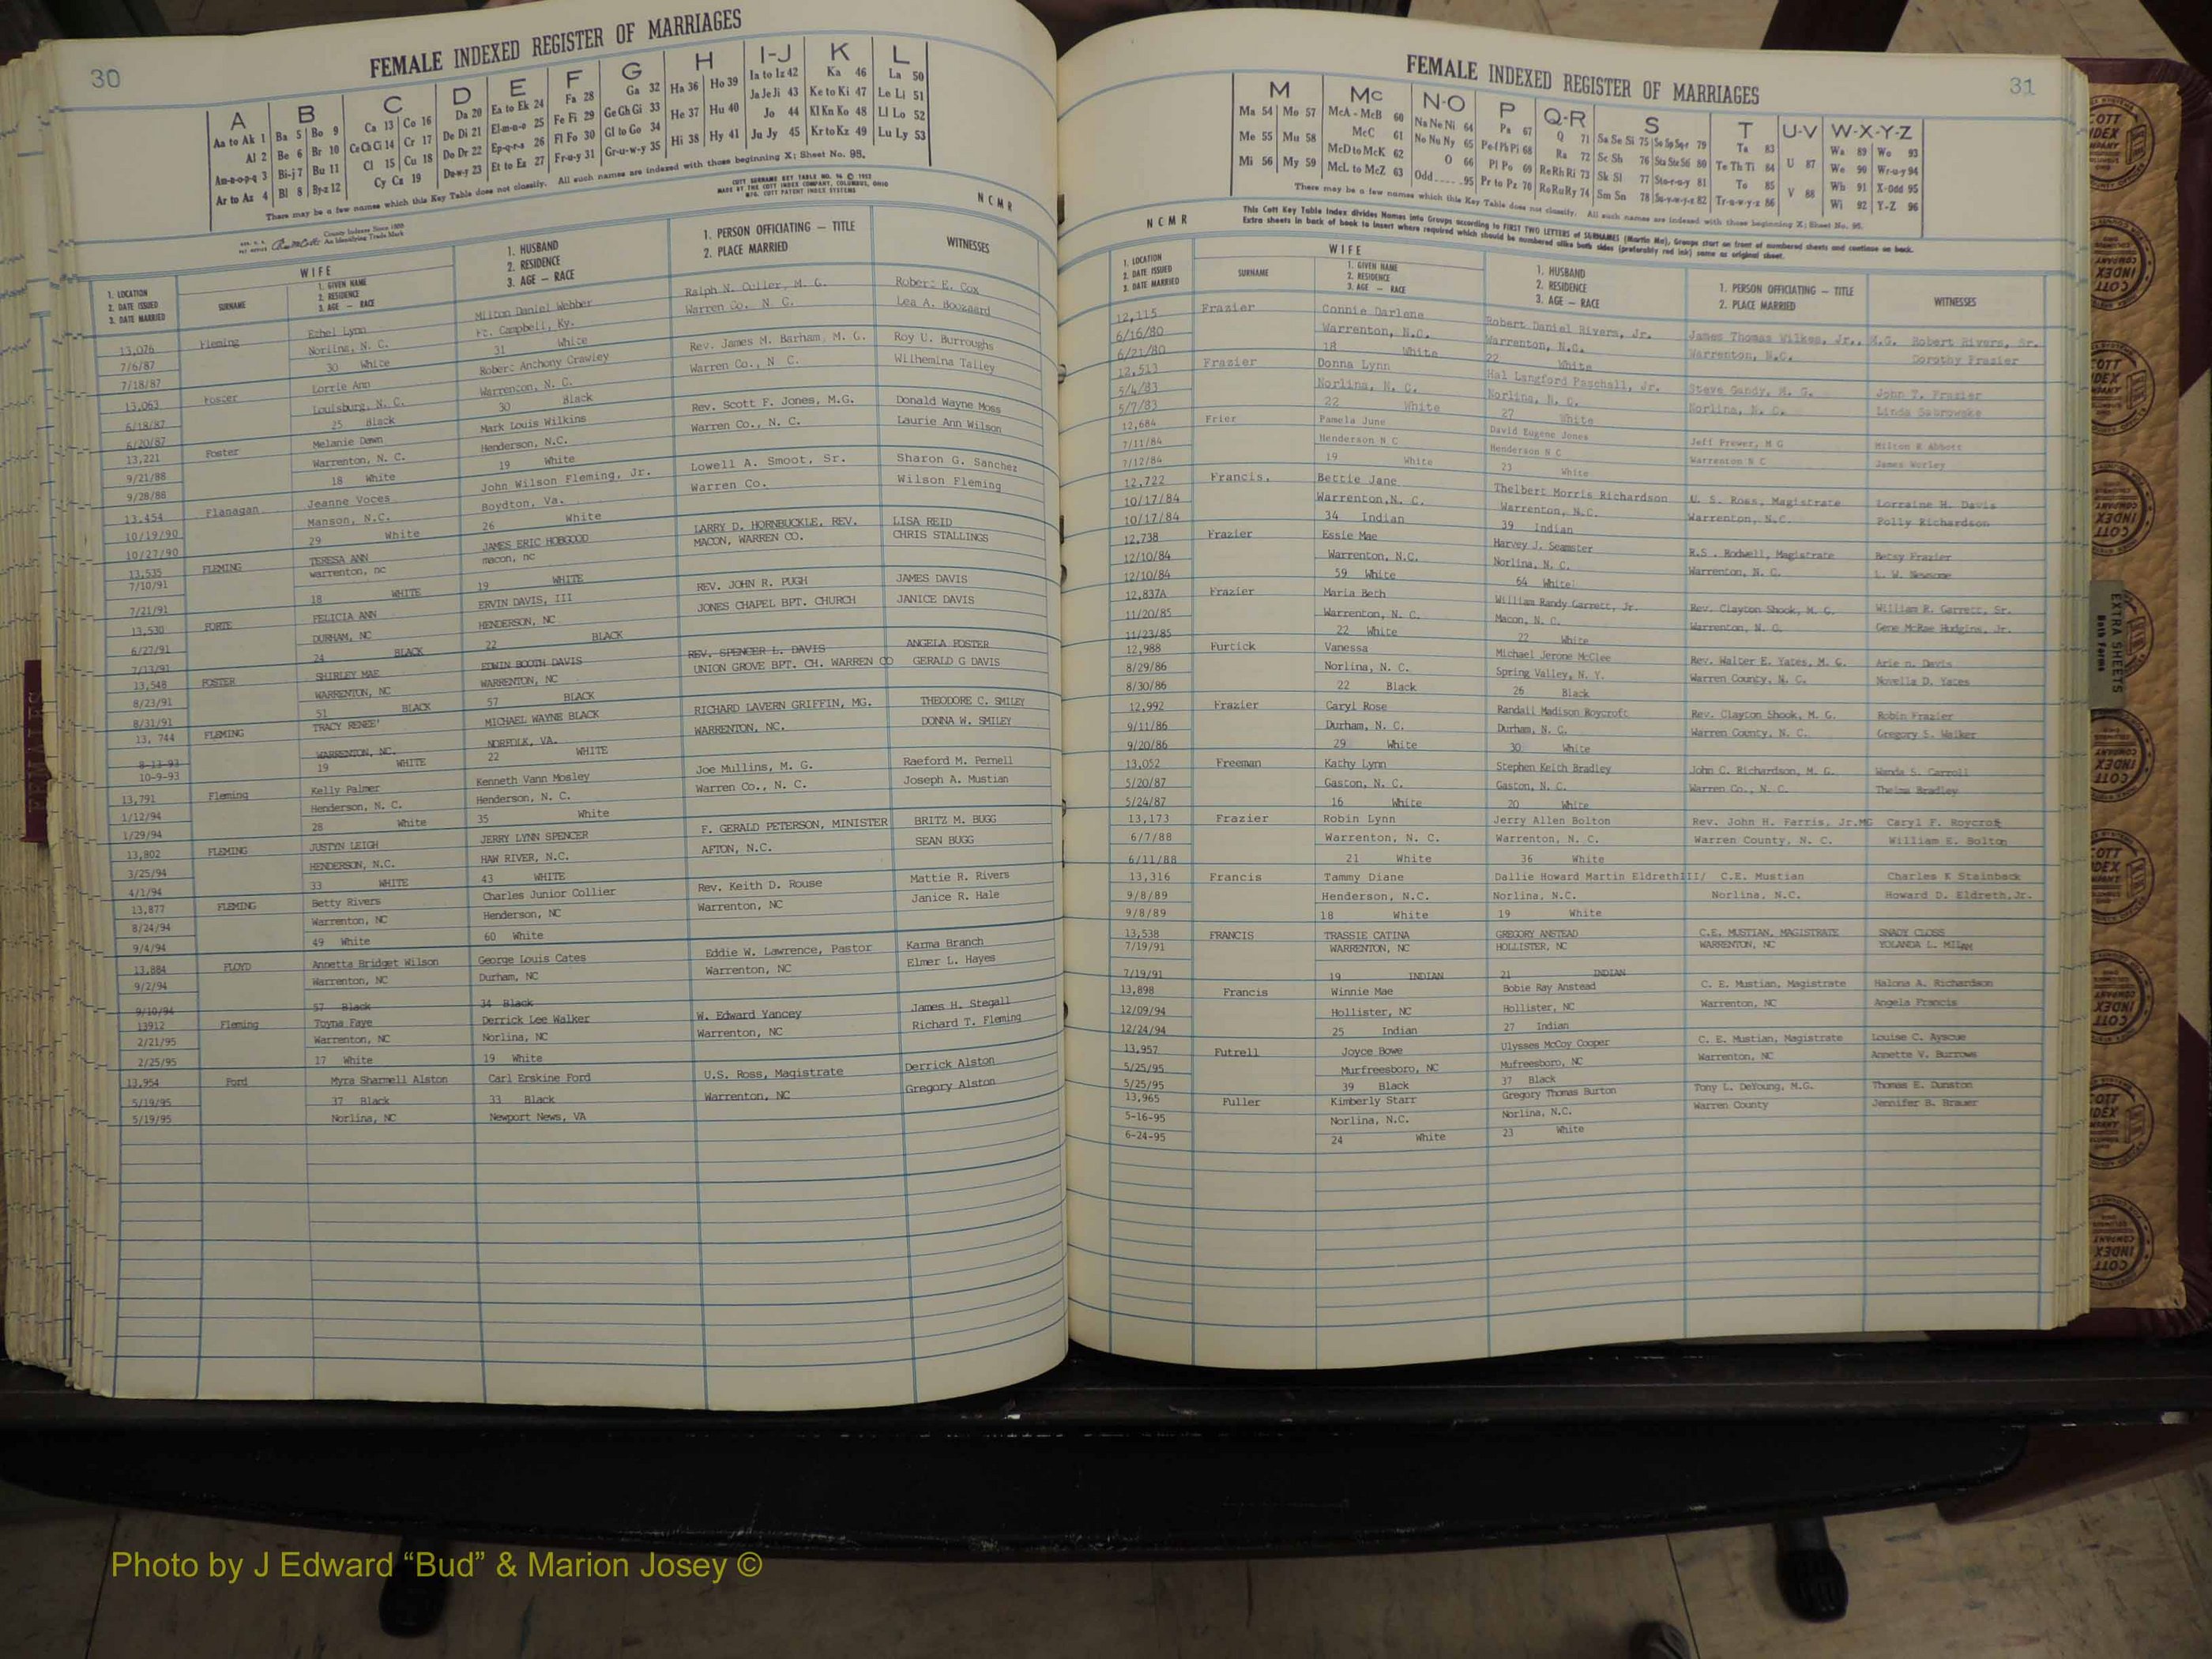 30
FEMALE INDEXED REGISTER OF MARRIAGES
A B C D E F G H I-J K L
Aa to Ak 1 Ba 5 Bo 9 Ca 13 Co 16 Da 20 Ea to Ek 24 Fa 28 Ga 32 Ha 36 Ho 39 Ia to Iz 42 Ka 46 La 50
Al 2 Be 6 Br 10 Ce Ch Ci 14 Cr 17 De Di 21 El-m-n-o 25 Fe Fi 29 Ge Gh Gi 33 He 37 Hu 40 Ja Je Ji 43 Ke to Ki 47 Le Li 51
An-n-o-p-q 3 Bi-j 7 Bu 11 Cl 15 Cu 18 Do Dr 22 Ep-q-r-s 26 Fl Fo 30 Gl to Go 34 Hi 38 Hy 41 Jo 44 Kl Kn Ko 48 Ll Lo 52
Ar to Az 4 Bl 8 By-z 12 Cy Cz 19 Du-w-y 23 Et to Ez 27 Fr-u-y 31 Gr-u-w-y 35 Ju Jy 45 Kr to Kz 49 Lu Ly 53
There may be a few names which this Key Table does not classify. All such names are indexed with those beginning X; Sheet No. 95.
COTT SURNAME KEY TABLE NO. 96 © 1953
MADE BY THE COTT INDEX COMPANY, COLUMBUS, OHIO
MFG. COTT PATENT INDEX SYSTEMS
County Indexes Since 1888
An Identifying Trade Mark
NCMR
1. LOCATION
2. DATE ISSUED
3. DATE MARRIED
WIFE
SURNAME
1. GIVEN NAME
2. RESIDENCE
3. AGE — RACE
1. HUSBAND
2. RESIDENCE
3. AGE — RACE
1. PERSON OFFICIATING — TITLE
2. PLACE MARRIED
WITNESSES
13,076 Fleming Ethel Lynn Milton Daniel Webber Ralph N. Culler, M. G. Robert E. Cox
7/6/87 Norlina, N. C. Ft. Campbell, Ky. Warren Co. N. C. Lea A. Bouzaard
7/18/87 30 White 31 White
13,063 Foster Lorrie Ann Robert Anthony Crawley Rev. James M. Barham, M. G. Roy U. Burroughs
6/18/87 Louisburg, N. C. Warrenton, N. C. Warren Co., N C. Wilhemina Talley
6/20/87 25 Black 30 Black
13,221 Foster Melanie Dawn Mark Louis Wilkins Rev. Scott F. Jones, M.G. Donald Wayne Moss
9/21/88 Warrenton, N. C. Henderson, N.C. Warren Co., N. C. Laurie Ann Wilson
9/28/88 18 White 19 White
13,454 Flanagan Jeanne Voces John Wilson Fleming, Jr. Lowell A. Smoot, Sr. Sharon G. Sanchez
10/19/90 Manson, N.C. Boydton, Va. Warren Co. Wilson Fleming
10/27/90 29 White 26 White
13,535 FLEMING TERESA ANN JAMES ERIC HOBGOOD LARRY D. HORNBUCKLE, REV. LISA REID
7/10/91 warrenton, nc macon, nc MACON, WARREN CO. CHRIS STALLINGS
7/21/91 18 WHITE 19 WHITE
13,530 FORTE FELICIA ANN ERVIN DAVIS, III REV. JOHN R. PUGH JAMES DAVIS
6/27/91 DURHAM, NC HENDERSON, NC JONES CHAPEL BPT. CHURCH JANICE DAVIS
7/13/91 24 BLACK 22 BLACK
13,548 FOSTER SHIRLEY MAE EDWIN BOOTH DAVIS REV. SPENCER L. DAVIS ANGELA FOSTER
8/23/91 WARRENTON, NC WARRENTON, NC UNION GROVE BPT. CH. WARREN CO GERALD G DAVIS
8/31/91 51 BLACK 57 BLACK
13, 744 FLEMING TRACY RENEE' MICHAEL WAYNE BLACK RICHARD LAVERN GRIFFIN, MG. THEODORE C. SMILEY
8-13-93 WARRENTON, NC. NORFOLK, VA. WARRENTON, NC. DONNA W. SMILEY
10-9-93 19 WHITE 22 WHITE
13,791 Fleming Kelly Palmer Kenneth Vann Mosley Joe Mullins, M. G. Raeford M. Pernell
1/12/94 Henderson, N. C. Henderson, N. C. Warren Co., N. C. Joseph A. Mustian
1/29/94 28 White 35 White
13,802 FLEMING JUSTYN LEIGH JERRY LYNN SPENCER F. GERALD PETERSON, MINISTER BRITZ M. BUGG
3/25/94 HENDERSON, N.C. HAW RIVER, N.C. AFTON, N.C. SEAN BUGG
4/1/94 33 WHITE 43 WHITE
13,877 FLEMING Betty Rivers Charles Junior Collier Rev. Keith D. Rouse Mattie R. Rivers
8/24/94 Warrenton, NC Henderson, NC Warrenton, NC Janice R. Hale
9/4/94 49 White 60 White
13,884 FLOYD Annetta Bridget Wilson George Louis Cates Eddie W. Lawrence, Pastor Karma Branch
9/2/94 Warrenton, NC Durham, NC Warrenton, NC Elmer L. Hayes
9/10/94 57 Black 34 Black
13912 Fleming Toyna Faye Derrick Lee Walker W. Edward Yancey James H. Stegall
2/21/95 Warrenton, NC Norlina, NC Warrenton, NC Richard T. Fleming
2/25/95 17 White 19 White
13,954 Ford Myra Sharmell Alston Carl Erskine Ford U.S. Ross, Magistrate Derrick Alston
5/19/95 37 Black 33 Black Warrenton, NC Gregory Alston
5/19/95 Norlina, NC Newport News, VA
31
FEMALE INDEXED REGISTER OF MARRIAGES
M Mc N-O P Q-R S T U-V W-X-Y-Z
Ma 54 Mo 57 McA - McB 60 Na Ne Ni 64 Pa 67 Q 71 Sa Se Si 75 So Sp Sq-r 79 Ta 83 U 87 Wa 89 Wo 93
Me 55 Mu 58 McC 61 No Nu Ny 65 Pe-f Ph Pi 68 Ra 72 Sc Sh 76 Sta Ste Sti 80 Te Th Ti 84 V 88 We 90 Wr-u-y 94
Mi 56 My 59 McD to McK 62 O 66 Pl Po 69 Re Rh Ri 73 Sk Sl 77 Sto-r-u-y 81 To 85 Wh 91 X-Odd 95
McL to McZ 63 Odd 95 Pr to Pz 70 Ro Ru Ry 74 Sm Sn 78 Su-v-w-y-z 82 Tr-u-w-y-z 86 Wi 92 Y-Z 96
There may be a few names which this Key Table does not classify. All such names are indexed with those beginning X; Sheet No. 95.
NCMR
This Cott Key Table Index divides Names into Groups according to FIRST TWO LETTERS of SURNAMES (Martin Ma), Groups start on front of numbered sheets and continue on back.
Extra sheets in back of book to insert where required which should be numbered alike both sides (preferably red ink) same as original sheet.
1. LOCATION
2. DATE ISSUED
3. DATE MARRIED
WIFE
SURNAME
1. GIVEN NAME
2. RESIDENCE
3. AGE — RACE
1. HUSBAND
2. RESIDENCE
3. AGE — RACE
1. PERSON OFFICIATING — TITLE
2. PLACE MARRIED
WITNESSES
12,115 Frazier Connie Darlene Robert Daniel Rivers, Jr. James Thomas Wilkes, Jr., M.G. Robert Rivers, Sr.
6/16/80 Warrenton, N.C. Warrenton, N.C. Warrenton, N.C. Dorothy Frazier
6/21/80 18 White 22 White
12,513 Frazier Donna Lynn Hal Langford Paschall, Jr. Steve Gandy, M. G. John T. Frazier
5/4/83 Norlina, N. C. Norlina, N. C. Norlina, N. C. Linda
5/7/83 22 White 27 White
12,684 Frier Pamela June David Eugene Jones Jeff Frewer, M G Milton R Abbott
7/11/84 Henderson N C Henderson N C Warrenton N C James Worley
7/12/84 19 White 23 White
12,722 Francis. Bettie Jane Thelbert Morris Richardson U. S. Ross, Magistrate Lorraine H. Davis
10/17/84 Warrenton,N. C. Warrenton, N.C. Warrenton, N.C. Polly Richardson
10/17/84 34 Indian 39 Indian
12,738 Frazier Essie Mae Harvey J. Seamster R.S. Rodwell, Magistrate Betsy Frazier
12/10/84 Warrenton, N.C. Norlina, N. C. Warrenton, N. C. L. W. Newsome
12/10/84 59 White 64 White
12,837A Frazier Maria Beth William Randy Garrett, Jr. Rev. Clayton Shook, M. G. William R. Garrett, Sr.
11/20/85 Warrenton, N. C. Macon, N. C. Warrenton, N. C. Gene McRae Hudgins, Jr.
11/23/85 22 White 22 White
12,988 Furtick Vanessa Michael Jerone McClee Rev. Walter E. Yates, M. G. Arie n. Davis
8/29/86 Norlina, N. C. Spring Valley, N. Y. Warren County, N. C. Novella D. Yates
8/30/86 22 Black 26 Black
12,992 Frazier Caryl Rose Randall Madison Roycroft Rev. Clayton Shook, M. G. Robin Frazier
9/11/86 Durham, N. C. Durham, N. C. Warren County, N. C. Gregory S. Walker
9/20/86 29 White 30 White
13,052 Freeman Kathy Lynn Stephen Keith Bradley John C. Richardson, M. G. Wanda S. Carroll
5/20/87 Gaston, N. C. Gaston, N. C. Warren Co., N. C. Thelma Bradley
5/24/87 16 White 20 White
13,173 Frazier Robin Lynn Jerry Allen Bolton Rev. John H. Ferris, Jr.MG Caryl F. Roycroft
6/7/88 Warrenton, N. C. Warrenton, N. C. Warren County, N. C. William E. Bolton
6/11/88 21 White 36 White
13,316 Francis Tammy Diane Dallie Howard Martin EldrethIII/ C.E. Mustian Charles K Steinback
9/8/89 Henderson, N.C. Norlina, N.C. Norlina, N.C. Howard D. Eldreth,Jr.
9/8/89 18 White 19 White
13,538 FRANCIS TRASSIE CATINA GREGORY ANSTEAD C.E. MUSTIAN, MAGISTRATE SHADY CLOSS
7/19/91 WARRENTON, NC HOLLISTER, NC WARRENTON, NC YOLANDA L. MILAM
7/19/91 19 INDIAN 21 INDIAN
13,898 Francis Winnie Mae Bobie Ray Anstead C. E. Mustian, Magistrate Halona A. Richardson
12/09/94 Hollister, NC Hollister, NC Warrenton, NC Angela Francis
12/24/94 25 Indian 27 Indian
13,957 Futrell Joyce Bowe Ulysses McCoy Cooper C. E. Mustian, Magistrate Louise C. Ayscue
5/25/95 Murfreesboro, NC Mufreesboro, NC Warrenton, NC Annette V. Burrows
5/25/95 39 Black 37 Black
13,965 Fuller Kimberly Starr Gregory Thomas Burton Tony L. DeYoung, M.G. Thomas E. Dunston
5-16-95 Norlina, N.C. Norlina, N.C. Warren County Jennifer B. Brauer
6-24-95 24 White 23 White
EXTRA SHEETS
Both Forms
Photo by J Edward “Bud” & Marion Josey ©